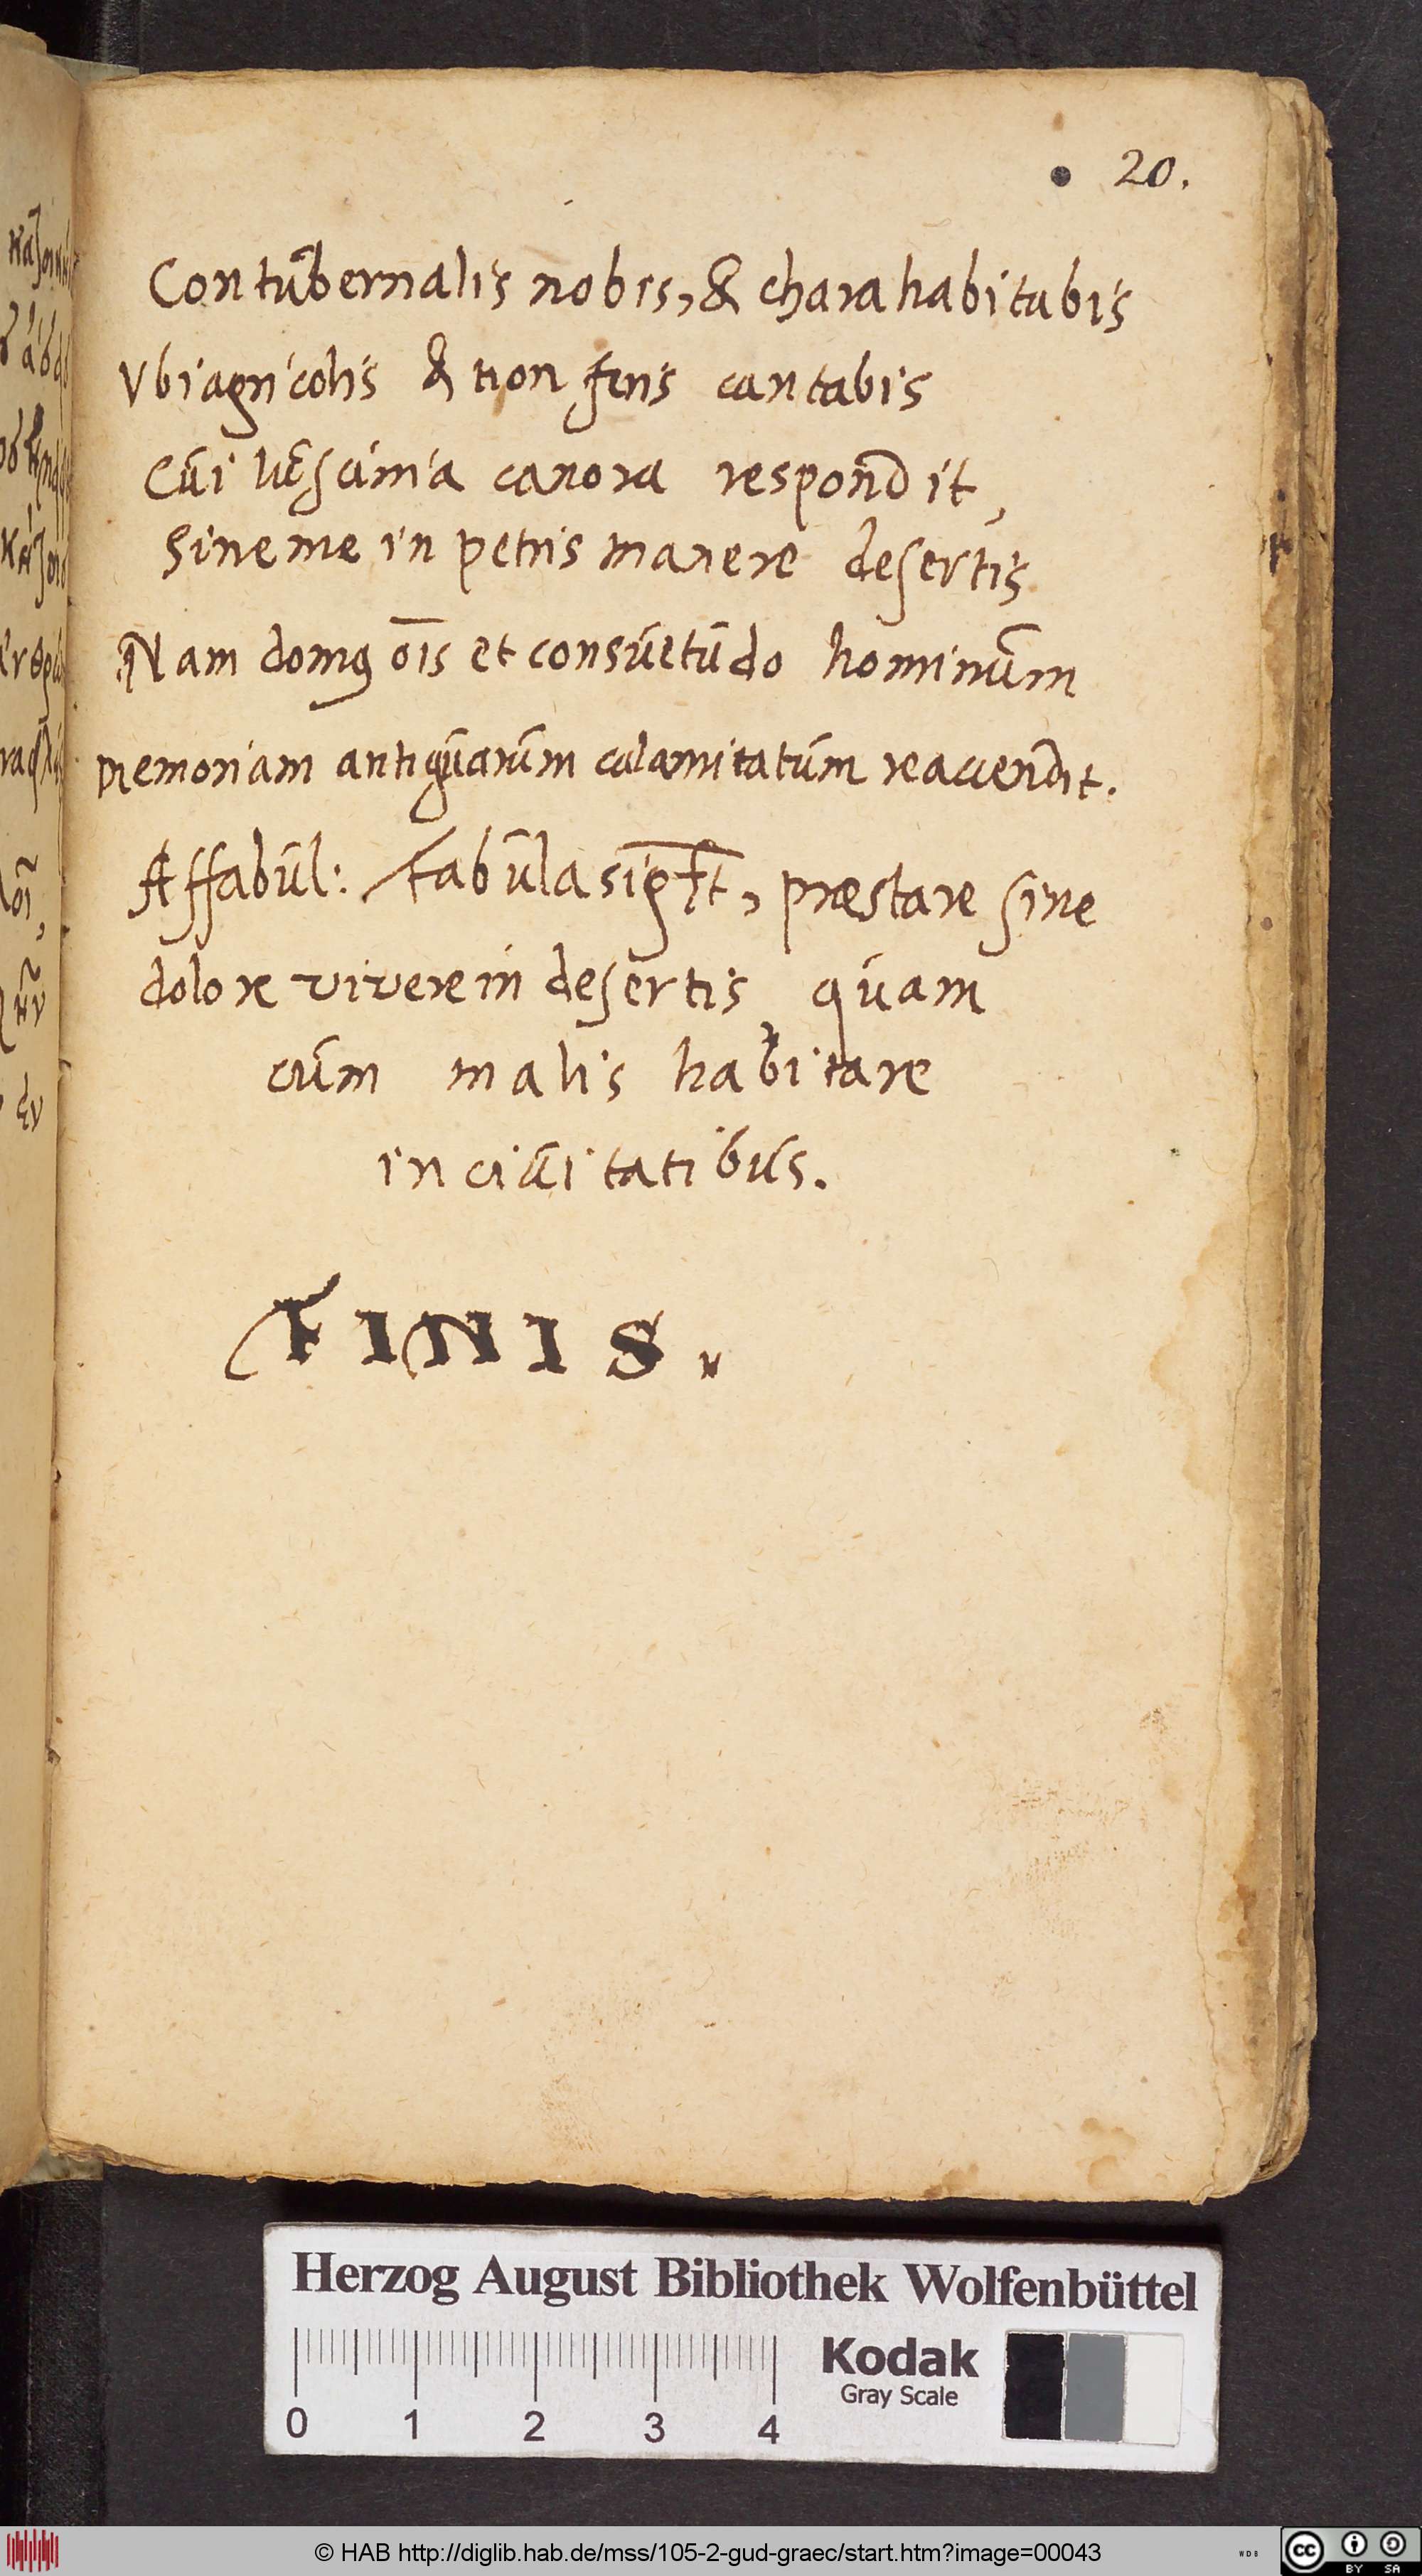 20.
Contubernalis nobis, & chara habitabis
Vbi agricolis & non feris cantabis
Cui luscinia canora respondit,
Sine me in petris manere desertis
Nam domꝰ oı̄s et consuetudo hominum
memoriam antiquarum calamitatum reaccendit.
Affabul: Fabula sig̅f̅t, præstare sine
dolore vivere in desertis quam
cum malis habitare
in ciuitatibus.
FINIS.
Herzog August Bibliothek Wolfenbüttel
Kodak
Gray Scale
0 1 2 3 4
© HAB http://diglib.hab.de/mss/105-2-gud-graec/start.htm?image=00043
WDB
cc BY SA